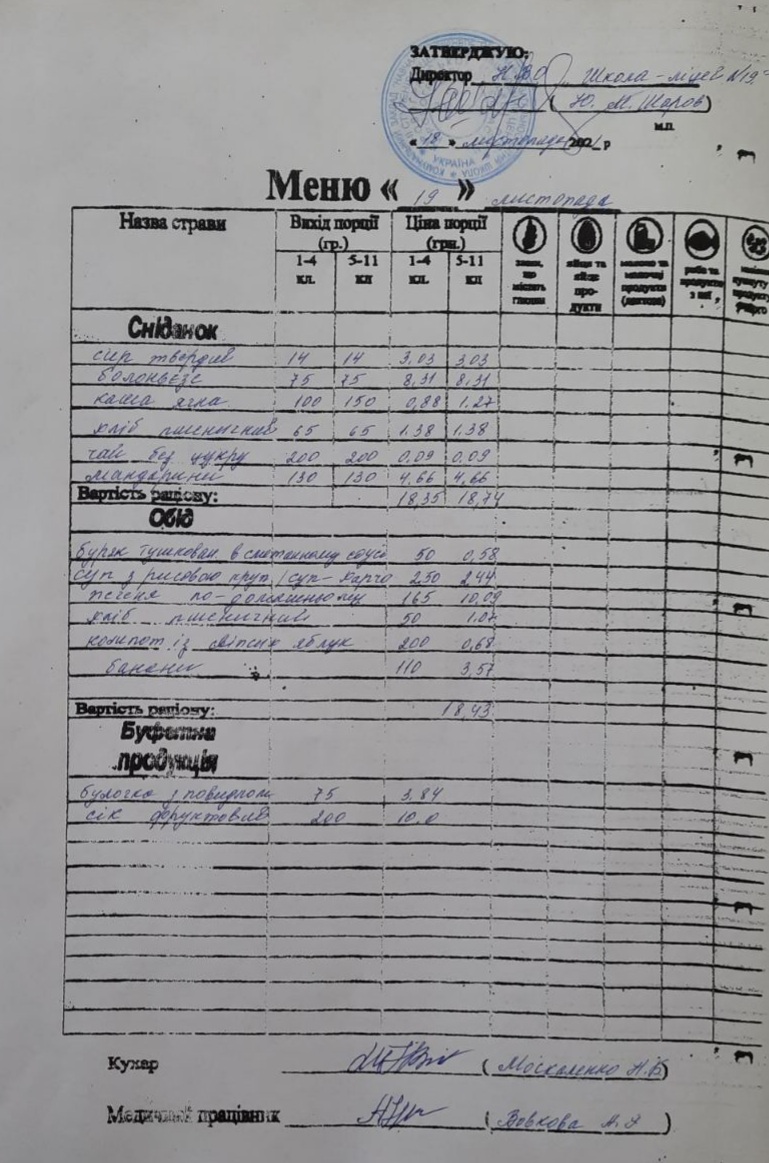 ЗАТВЕРДЖУЮ:
Директор НВО „Школа-ліцей №19"
(Ю. М. Шаров)
м.п.
«18» листопада 202_ р
Меню « 19 » листопада
Назва страви Вихід порції (гр.) Ціна порції (грн.)
1-4 кл. 5-11 кл 1-4 кл. 5-11 кл
злаки, що містять глютен
яйця та яйце продукти
молоко та молочні продукти (лактоза)
риба та продукти з неї
Сніданок
сир твердий 14 14 3,03 3,03
болоньєзе 75 75 8,31 8,31
каша ячна 100 150 0,88 1.27
хліб пшеничний 65 65 1.38 1.38
чай без цукру 200 200 0,09 0,09
мандарини 130 130 4,66 4,66
Вартість раціону: 18,35 18,74
Обід
буряк тушкован. в сметанному соусі 50 0,58
суп з рисовою круп./суп-харчо 250 2.44
печеня по-домашньому 165 10,09
хліб пшеничний 50 1.07
компот із свіжих яблук 200 0,68
банани 110 3,57
Вартість раціону: 18,43
Буфетна
продукція
булочка з повидлом 75 3.84
сік фруктовий 200 10.0
Кухар (Москаленко Н.Б)
Медичний працівник (Вовкова А.Я)